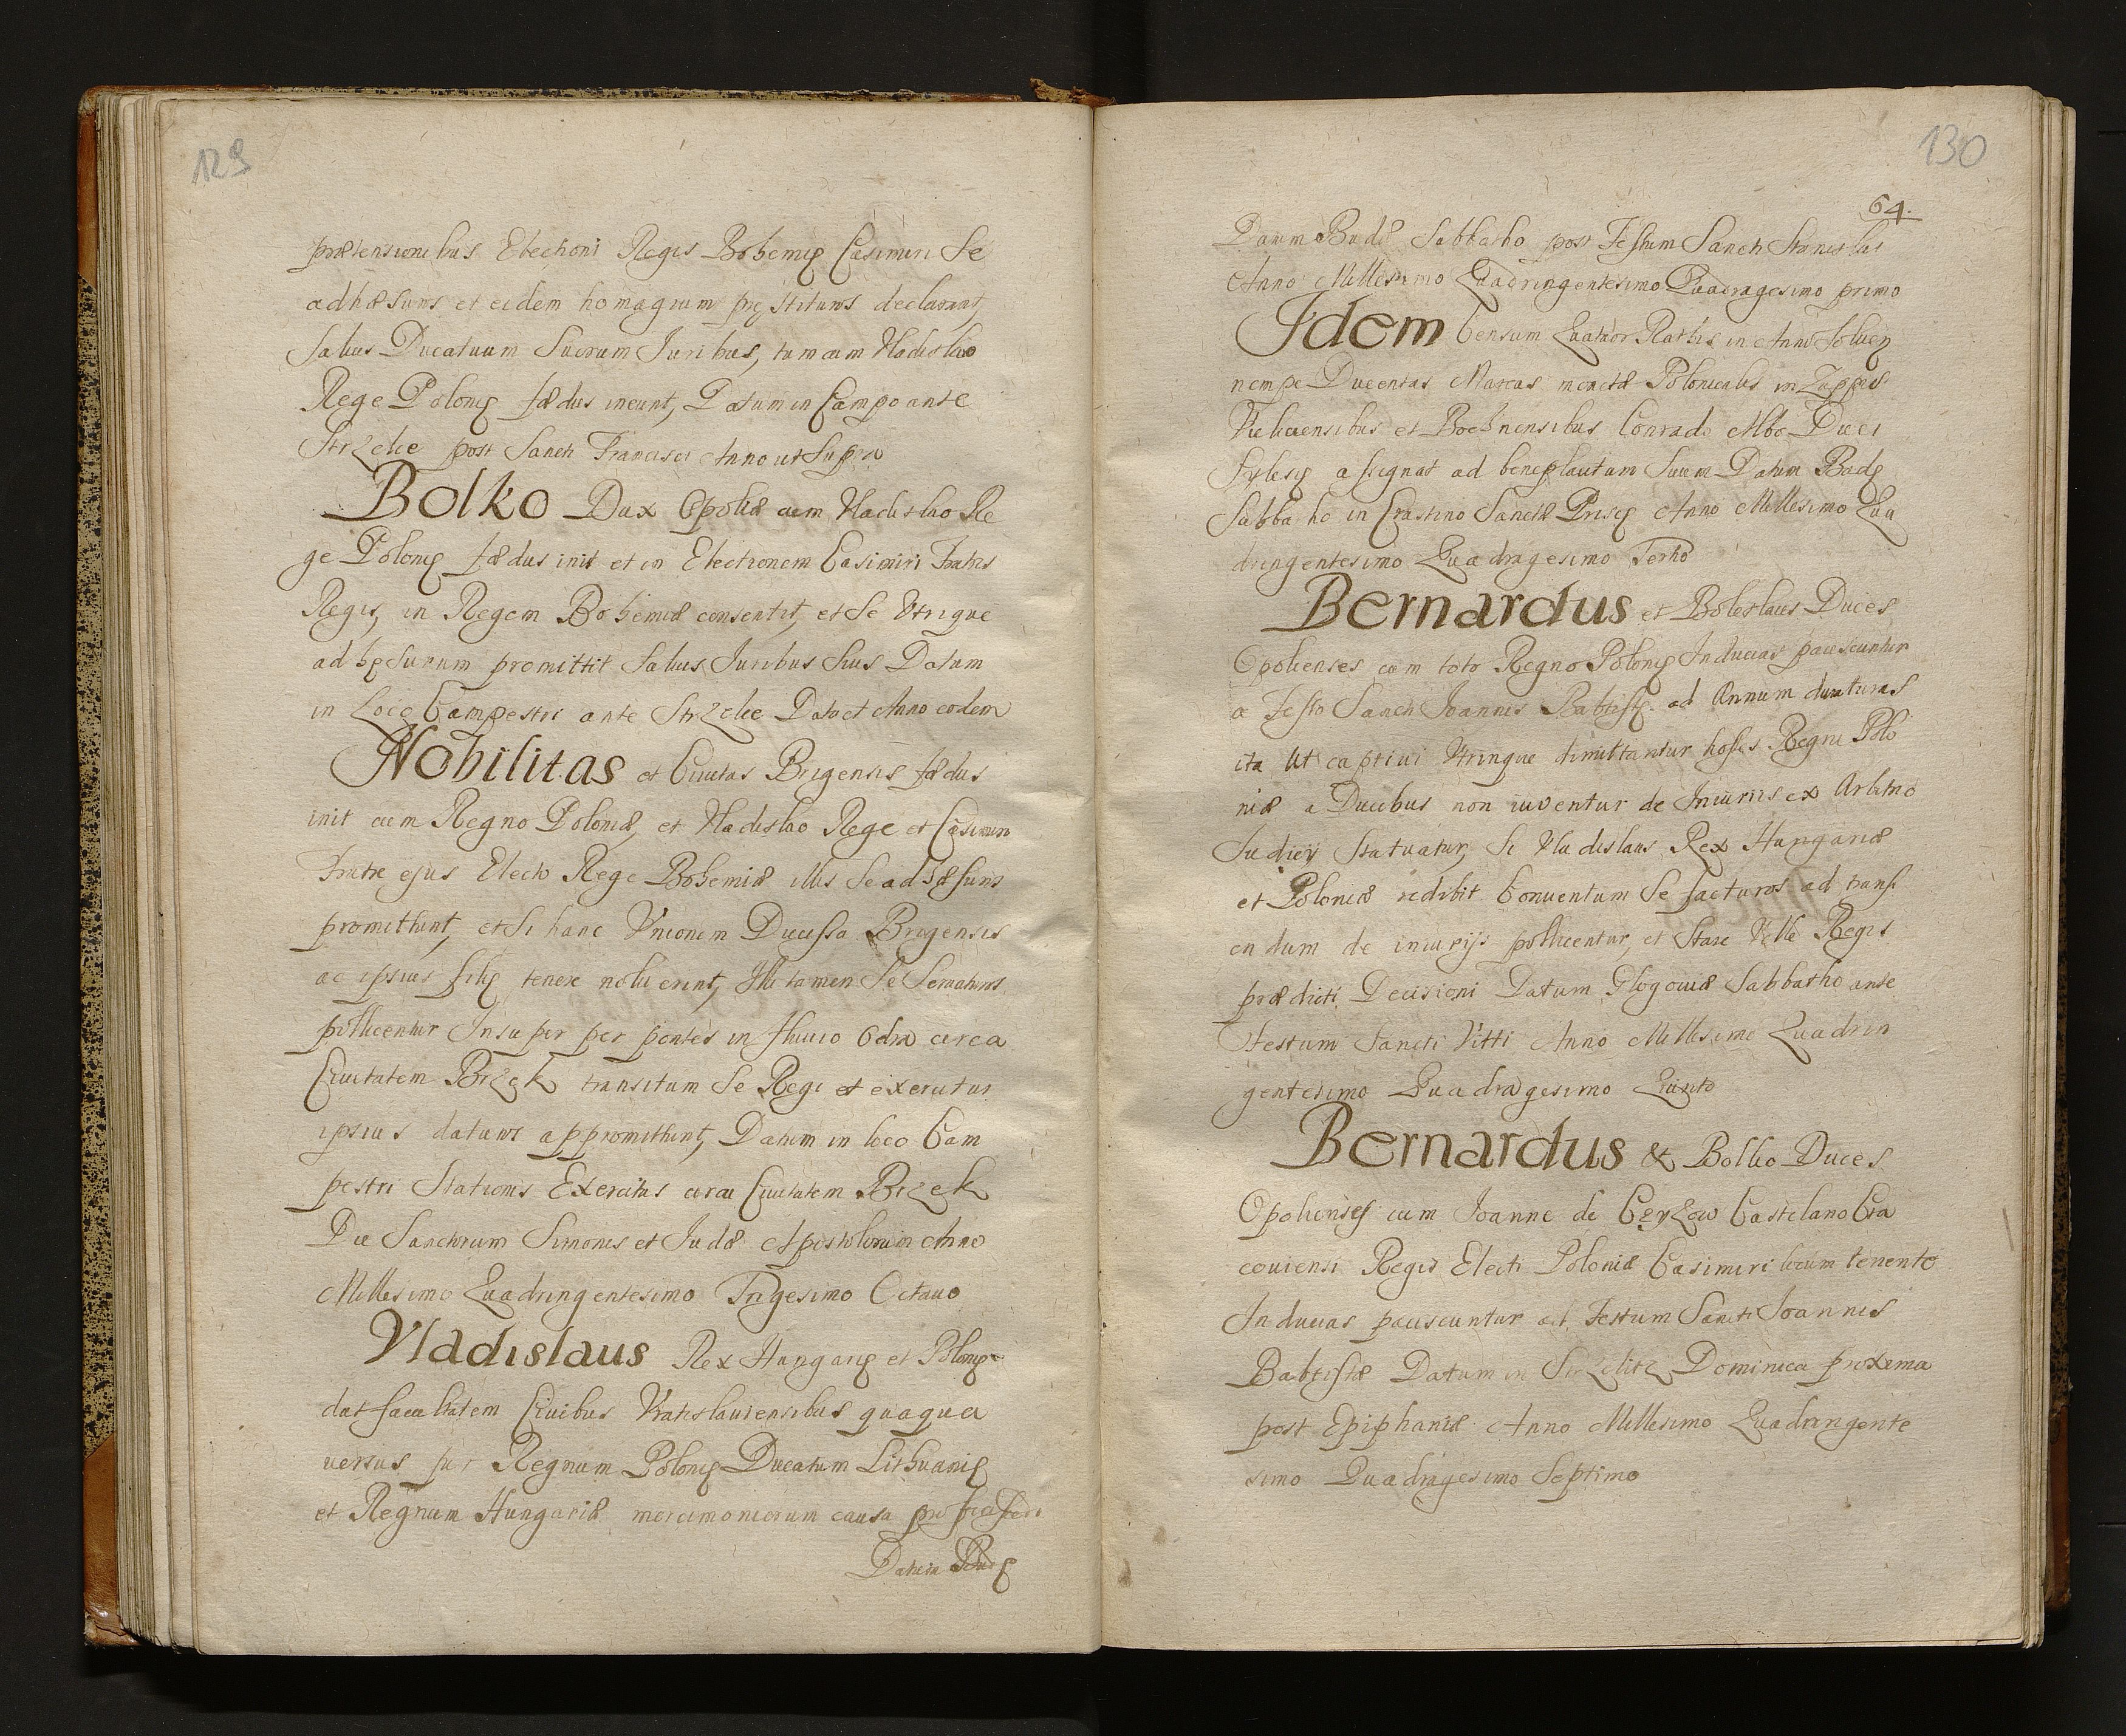 129
prætensionibus Electioni Regis Bohemię Casimiri Se
adhæsuros et eidem homagium pręstituros declarant,
Saluis Ducatuum Suorum Iuribus, tum cum Vladislao
Rege Polonię fædus ineunt, Datum in Campo ante
Strzelce post Sancti Francisci Anno ut Supra
Bolko Dux Opoliæ cum Vladislao Re
ge Polonię fædus init et in Electionem Casimiri Fratris
Regis, in Regem Bohemiæ consentit, et Se Vtrique
adhęsurum promittit Saluis Iuribus Suis Datum
in Loco Campestri ante Strzelce Dato et Anno eodem
Nobilitas et Ciuitas Brigensis fædus
init cum Regno Poloniæ, et Vladislao Rege et Casimiro
Fratre ejus Electo Rege Bohemiæ illis Se adhæsuros
promittunt, et Si hanc Vnionem Ducissa Brigensis
ac ipsius filij tenere noluerint, Illi tamen Se Seruaturos
pollicentur Insuper per pontes in fluuio Odra circa
Ciuitatem Brzek transitum Se Regi et exercitui
ipsius daturos appromittunt, Datum in loco Cam
pestri Stationis Exercitus circa Ciuitatem Brzek
Die Sanctorum Simonis et Judæ Apostolorum Anno
Millesimo Quadringentesimo Trigesimo Octauo
Vladislaus Rex Hungarię et Polonię
dat facultatem Ciuibus Vratislauiensibus quaqua
uersus per Regnum Polonię Ducatum Lithuanię
et Regnum Hungariæ mercimoniorum causa proficisci
Datum Budę
130
64.
Datum Budæ Sabbatho post Festum Sancti Stanislai
Anno Millesimo Quadringentesimo Quadragesimo primo
Idem Censum Quatuor Rathis in Anno Soluen
nempe Ducentas Marcas monetæ Polonicalis in Zuppis
Vieliciensibus et Bochnensibus Conrado Albo Duci
Sylesię assignat ad beneplacitum Suum Datum Budę
Sabbatho in Crastino Sanctæ Priscę Anno Millesimo Qua
dringentesimo Quadragesimo Tertio
Bernardus et Boleslaus Duces
Opolienses cum toto Regno Polonię Inducias paciscuntur
a Festo Sancti Joannis Baptistę ad Annum duraturas
ita Ut captiui Vtrinque dimittantur hostes Regni Polo
niæ a Ducibus non iuventur de Iniuriis ex Arbitrio
Judicij Statuatur, Si Vladislaus Rex Hungariæ
et Poloniæ redibit Conuentum Se facturos ad trans
endum de iniurijs pollicentur, et Stare Velle Regis
prædicti Decisioni Datum Glogouiæ Sabbatho ante
Festum Sancti Vitti Anno Millesimo Quadrin
gentesimo Quadragesimo Quinto
Bernardus & Bolko Duces
Opolienses cum Joanne de Czyzow Castelano Cra
couiensi Regis Electi Poloniæ Casimiri locum tenente
Inducias paciscuntur ad Festum Sancti Joannis
Babtistæ Datum in Strzelitz Dominica proxima
post Epiphaniæ Anno Millesimo Quadringente
simo Quadragesimo Septimo